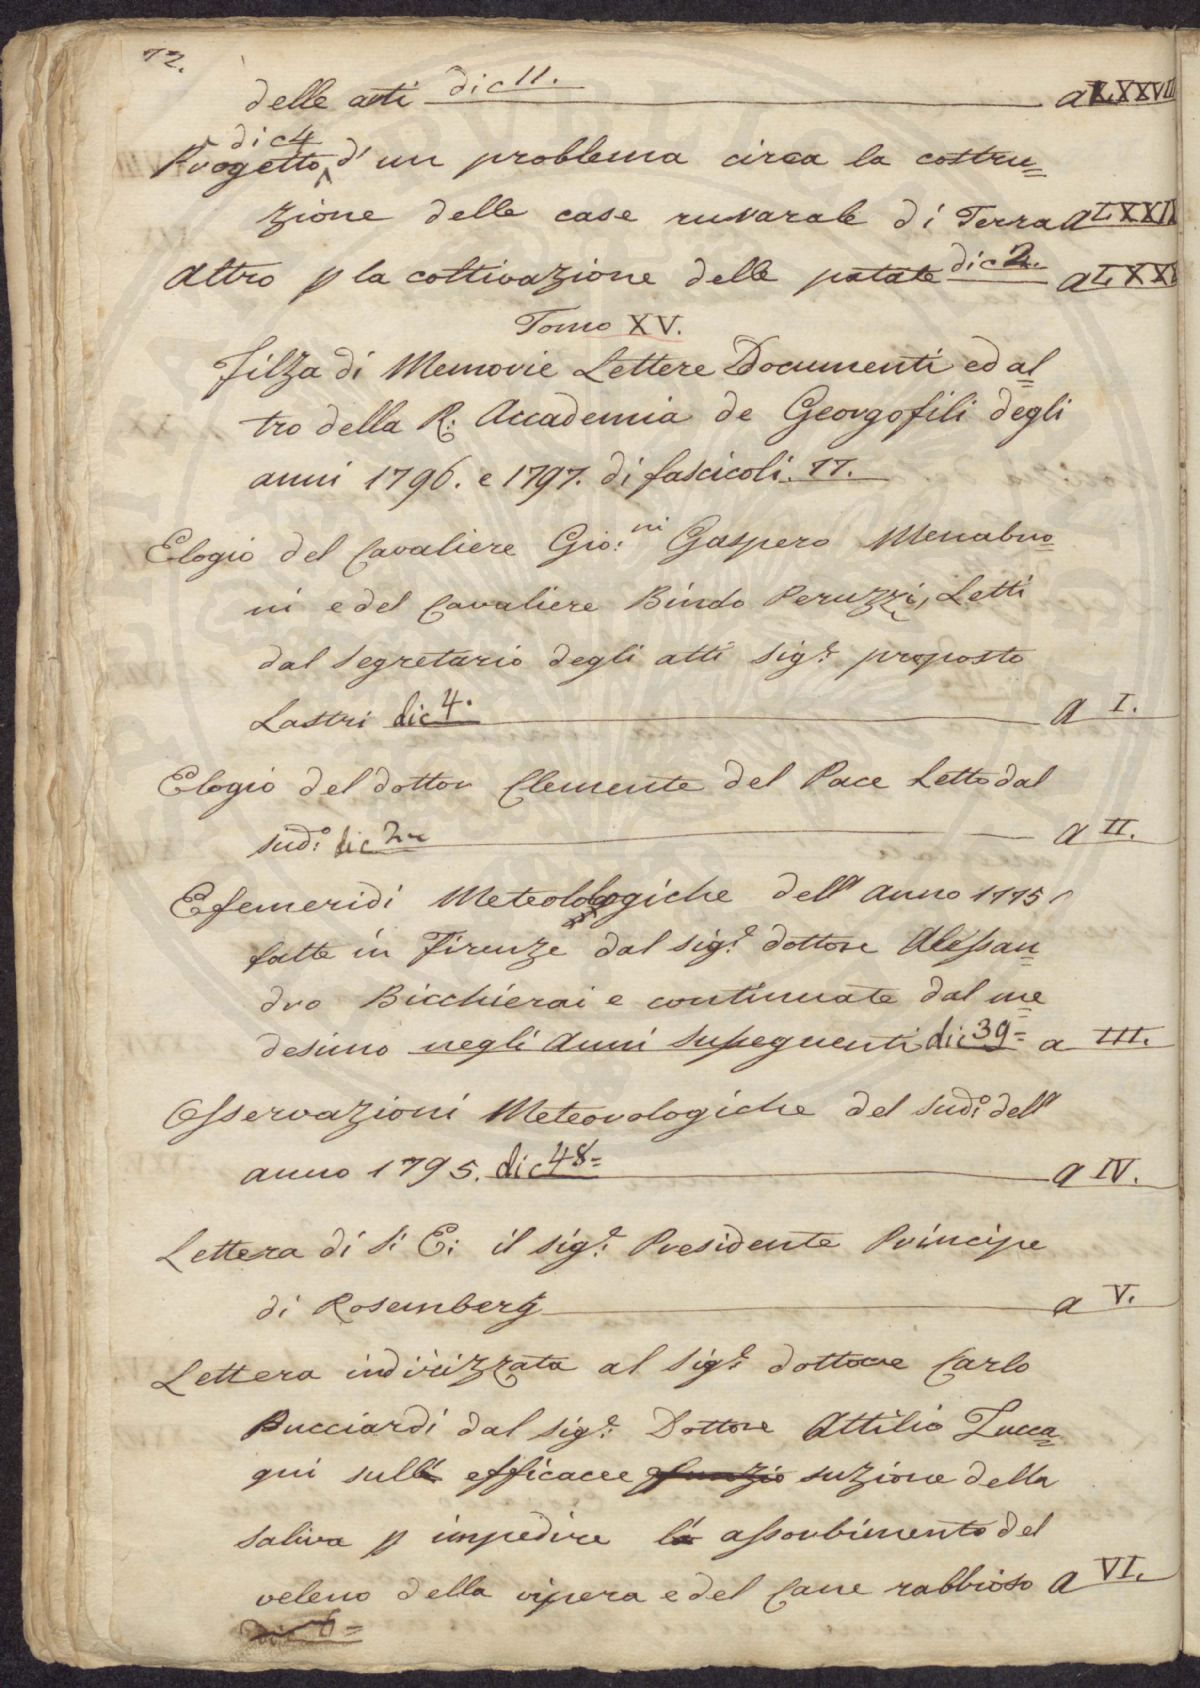 72.
delle arti di c 11. a LXXVII
di c 4
Progetto d' un problema circa la costru=
zione delle case rurarale di Terra a LXXIX
Altro p la coltivazione delle patate di c 2. a LXXX
Tomo XV.
Filza di Memorie Lettere Documenti ed al=
tro della R: Accademia de Georgofili degli
anni 1796. e 1797. di fascicoli. 77.
Elogio del Cavaliere Gio:ni Gaspero Menabuo=
ni e del Cavaliere Bindo Peruzzi, Letti
dal Segretario degli atti Sig.e proposto
Lastri di c 4. a I.
Elogio del dottor Clemente del Pace Letto dal
sud.o di c 2 a II.
Efemeridi Meteologiche dell' anno 1775
fatte in Firenze dal sig.e dottore Alessan=
dro Bicchierai e continuate dal me=
desimo negli Anni susseguenti di c 39= a III.
Osservazioni Meteorologiche del sud.o dell'
anno 1795. di c 48= a IV.
Lettera di S: E: il sig.e Presidente Principe
di Rosemberg a V.
Lettera indirizzata al Sig.e dottore Carlo
Bucciardi dal sig.e Dottore Attilio Zucca=
gni sull' efficacee suzione della
saliva p impedire l' assorbimento del
veleno della vipera e del Cane rabbioso a VI.
di c 6=